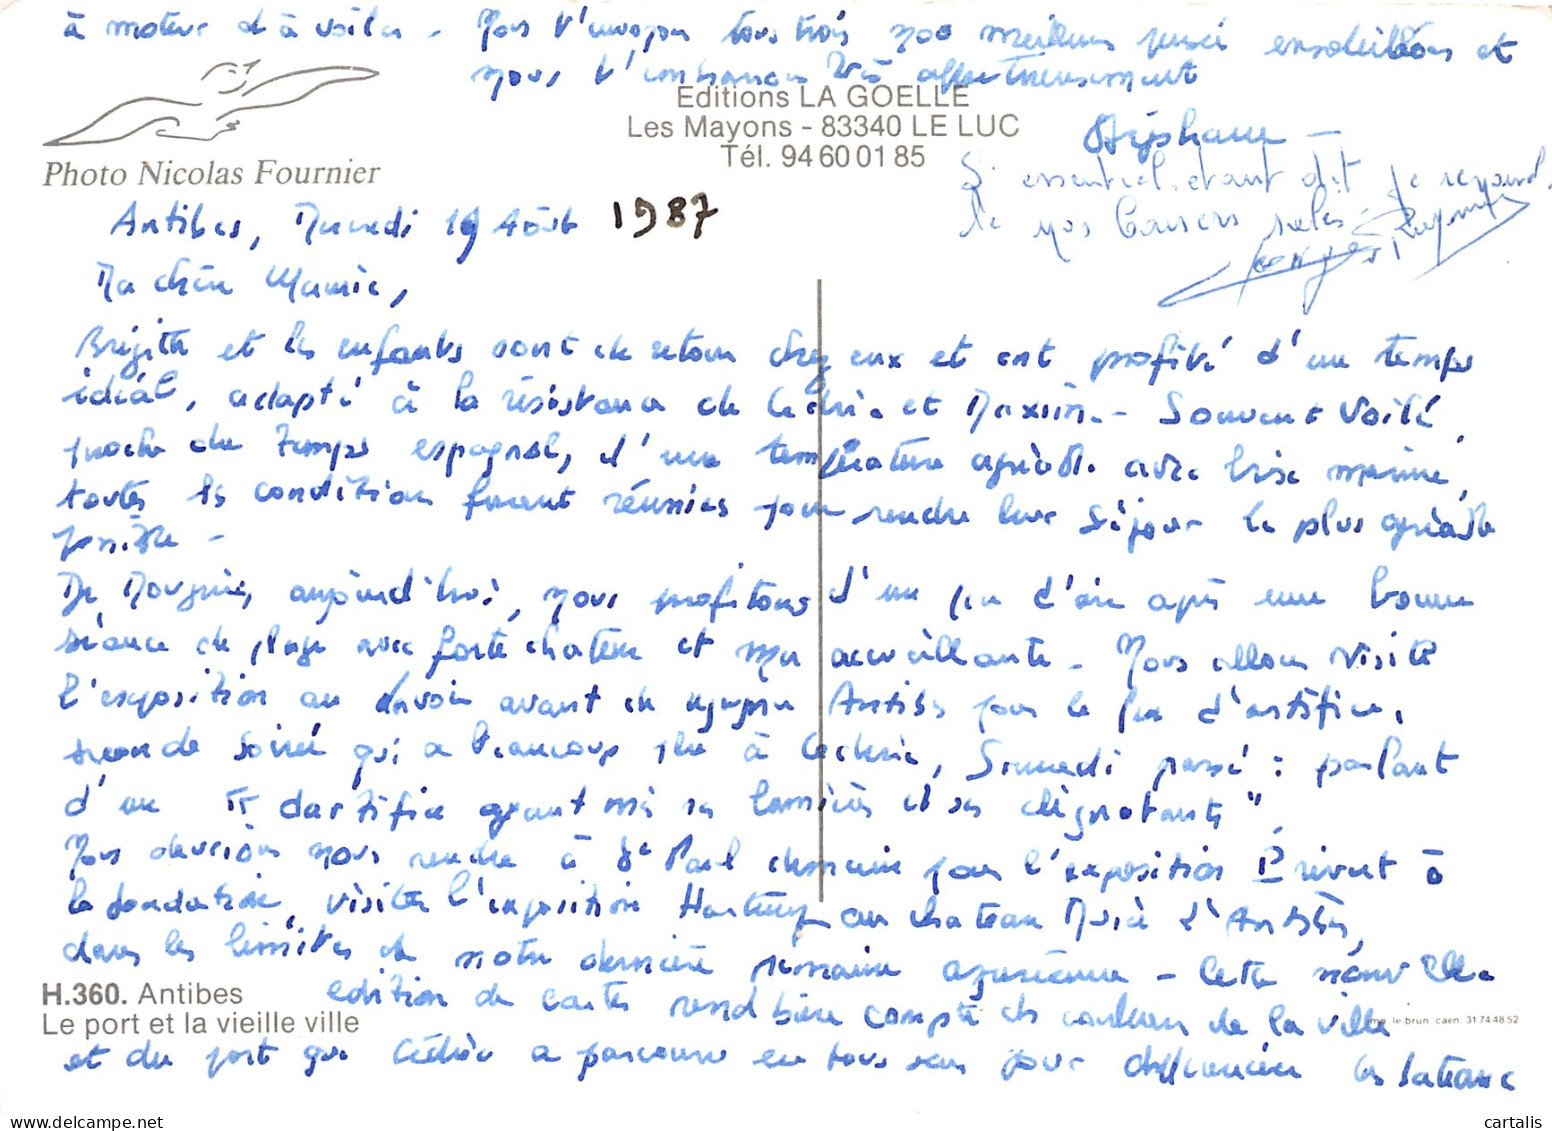 à moteur et à voiles - Nous t'envoyons tous trois nos meilleures pensées ensoleillées et
nous t'embrassons très affectueusement
Editions LA GOELLE
Les Mayons - 83340 LE LUC
Tél. 94 60 01 85
Stéphane -
Photo Nicolas Fournier
L'essentiel étant dit je
nos baisers salés
Antibes, Mercredi 19 Août 1987
Ma chère Mamie,
Brigitte et les enfants sont de retour chez eux et ont profité d'un temps
idéal, adapté à la résistance de Cédric et Maxime - Souvent voilé,
proche du temps espagnol, d'une température agréable avec brise marine,
toutes les conditions furent réunies pour rendre leur séjour le plus agréable
possible -
De Mougins, aujourd'hui, nous profitons d'un peu d'air après une bonne
séance de plage avec forte chaleur et mer accueillante - Nous allons visiter
l'exposition au avant de Antibes pour le feu d'artifice,
seconde soirée qui a beaucoup plu à Cédric, Samedi passé : parlant
d'un " dartifice ayant mis ses lumières et ses clignotants",
Nous devrions nous rendre à St Paul demain pour l'exposition à
la fondation, visiter l'exposition Hartung au chateau Musée d'Antibes,
dans les limites de notre dernière semaine azuréenne - Cette nouvelle
H.360. Antibes
édition de cartes rend bien compte des couleurs de la ville
Le port et la vieille ville
imp. le brun. caen. 31 74 48 52
et du port que Cédric a parcouru en tous sens pour différencier les bateaux
cartalis